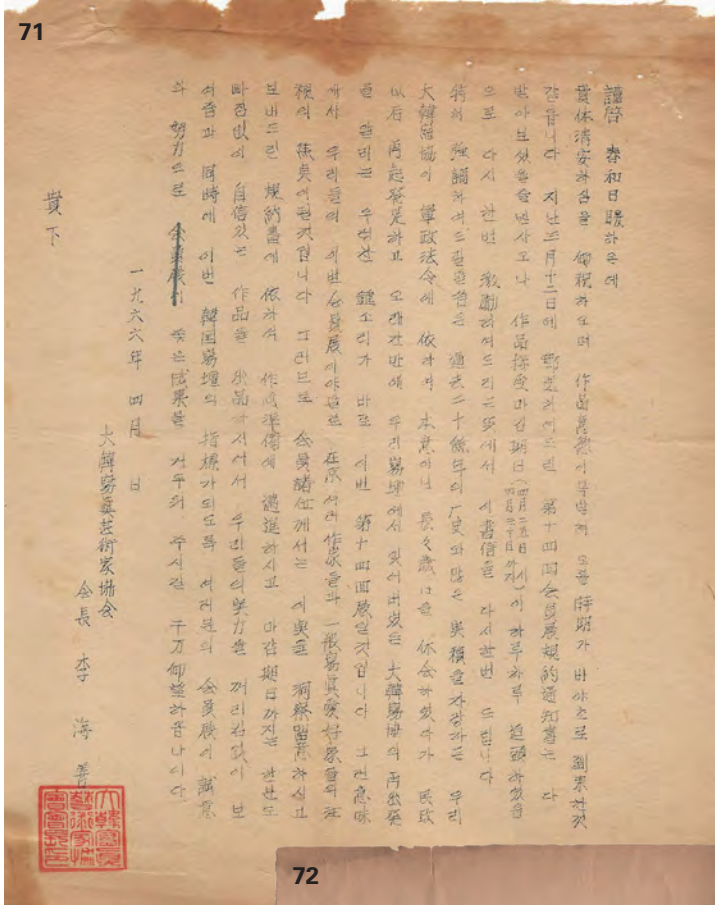 71
謹啓 春和日暖하온데
貴体淸安하심을 仰祝하오며 作品意慾이 북받쳐 오를 時期가 바야흐로 到來한것
같읍니다 지난三月十二日에 郵送하여드린 第十四回会員展規約通知書는 다
받아보셨을줄믿사오나 作品接受마감期日(四月二五日 시 四月三十日까지)이 하루하루 迫頭하였음
으로 다시 한번 激勵하여드리는뜻에서 이書信을 다시한번 드립니다
特히 强調하여드릴말씀은 過去二十餘年의 厂史와많은 実積을자랑하는 우리
大韓写協이 軍政法令에 依하여 本意아닌 長々歲月을 休会하였다가 民政
以后 再起発足하고 오래간만에 우리写壇에서 잊어버렸든 大韓写協의 再出発
을 알리는 우렁찬 鐘소리가 바로 이번 第十四回展일것입니다 그런意味
에서 우리들의 이번会員展이야말로 在京 여러作家들과 一般寫眞愛好家들의 注
視의 焦点이된것입니다 그러므로 会員諸位께서는 이点을 洞察留意하시고
보내드린 規約書에 依하여 作品準備에 邁進하시고 마감期日까지는 한분도
빠짐없이 自信있는 作品을 出品하시여서 우리들의実力을 꺼리낌없이 보
여줌과 同時에 이번 韓国写壇의 指標가되도록 여러분의 会員展에 誠意
와 努力으로 会員展이 좋은成果를 거두어 주시길 千万仰望하옵나이다
一九六六年 四月 日
大韓寫眞芸術家協会
会長 李 海 善
貴下
大韓寫眞
藝術家協
會會長印
72